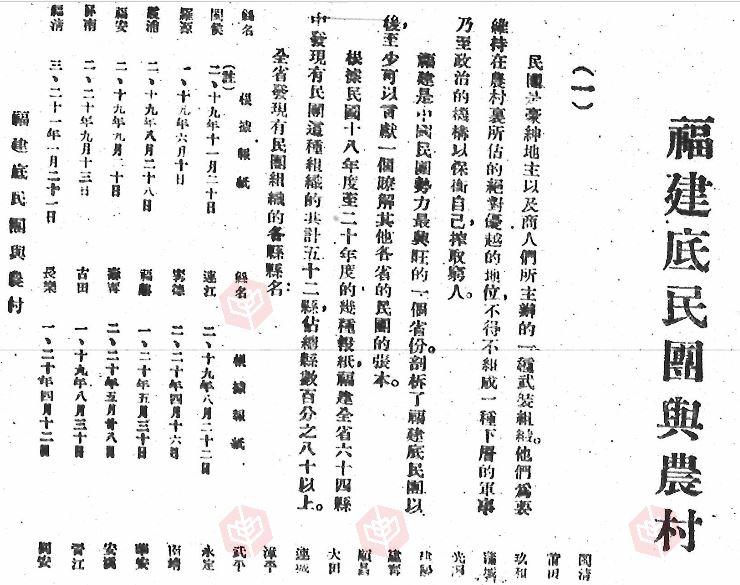 福建底民團與農村
(一)
民團是豪紳地主以及商人們所主辦的一種武裝組織。他們為要
維持在農村裏所佔的絕對優越的地位,不得不組成一種下層的軍事
乃至政治的機構以保衛自己搾取窮人。
福建是中國民團勢力最興旺的一個省份剖柝了福建底民團以
後,至少可以貢獻一個瞭解其他各省的民團的張本。
根據民國十八年度至二十年度的幾種報紙,福建全省六十四縣
中發現有民團這種組織的共計五十二縣,佔總縣數百分之八十以上。
全省發現有民團組織的各縣縣名:
縣名 根據報紙 縣名 根據報紙
(註)
閩侯 二、十九年十一月二十日 連江 二、十九年八月二十二日
羅源 一、十九年六月十日 寧德 二、二十年四月十六日
霞浦 二、十九年八月二十八日 福鼎 一、二十年五月三十日
福安 二、十九年九月二十日 壽寧 二、二十年五月廿八日
屏南 二、二十年九月十三日 古田 一、十九年八月三十日
福清 三、二十一年一月二十一日 長樂 一、二十年四月十二日
閩清
莆田
政和
建陽
順昌
大田
連城
漳平
武平
永定
南靖
華安
安溪
晉江
同安
福建底民團與農村